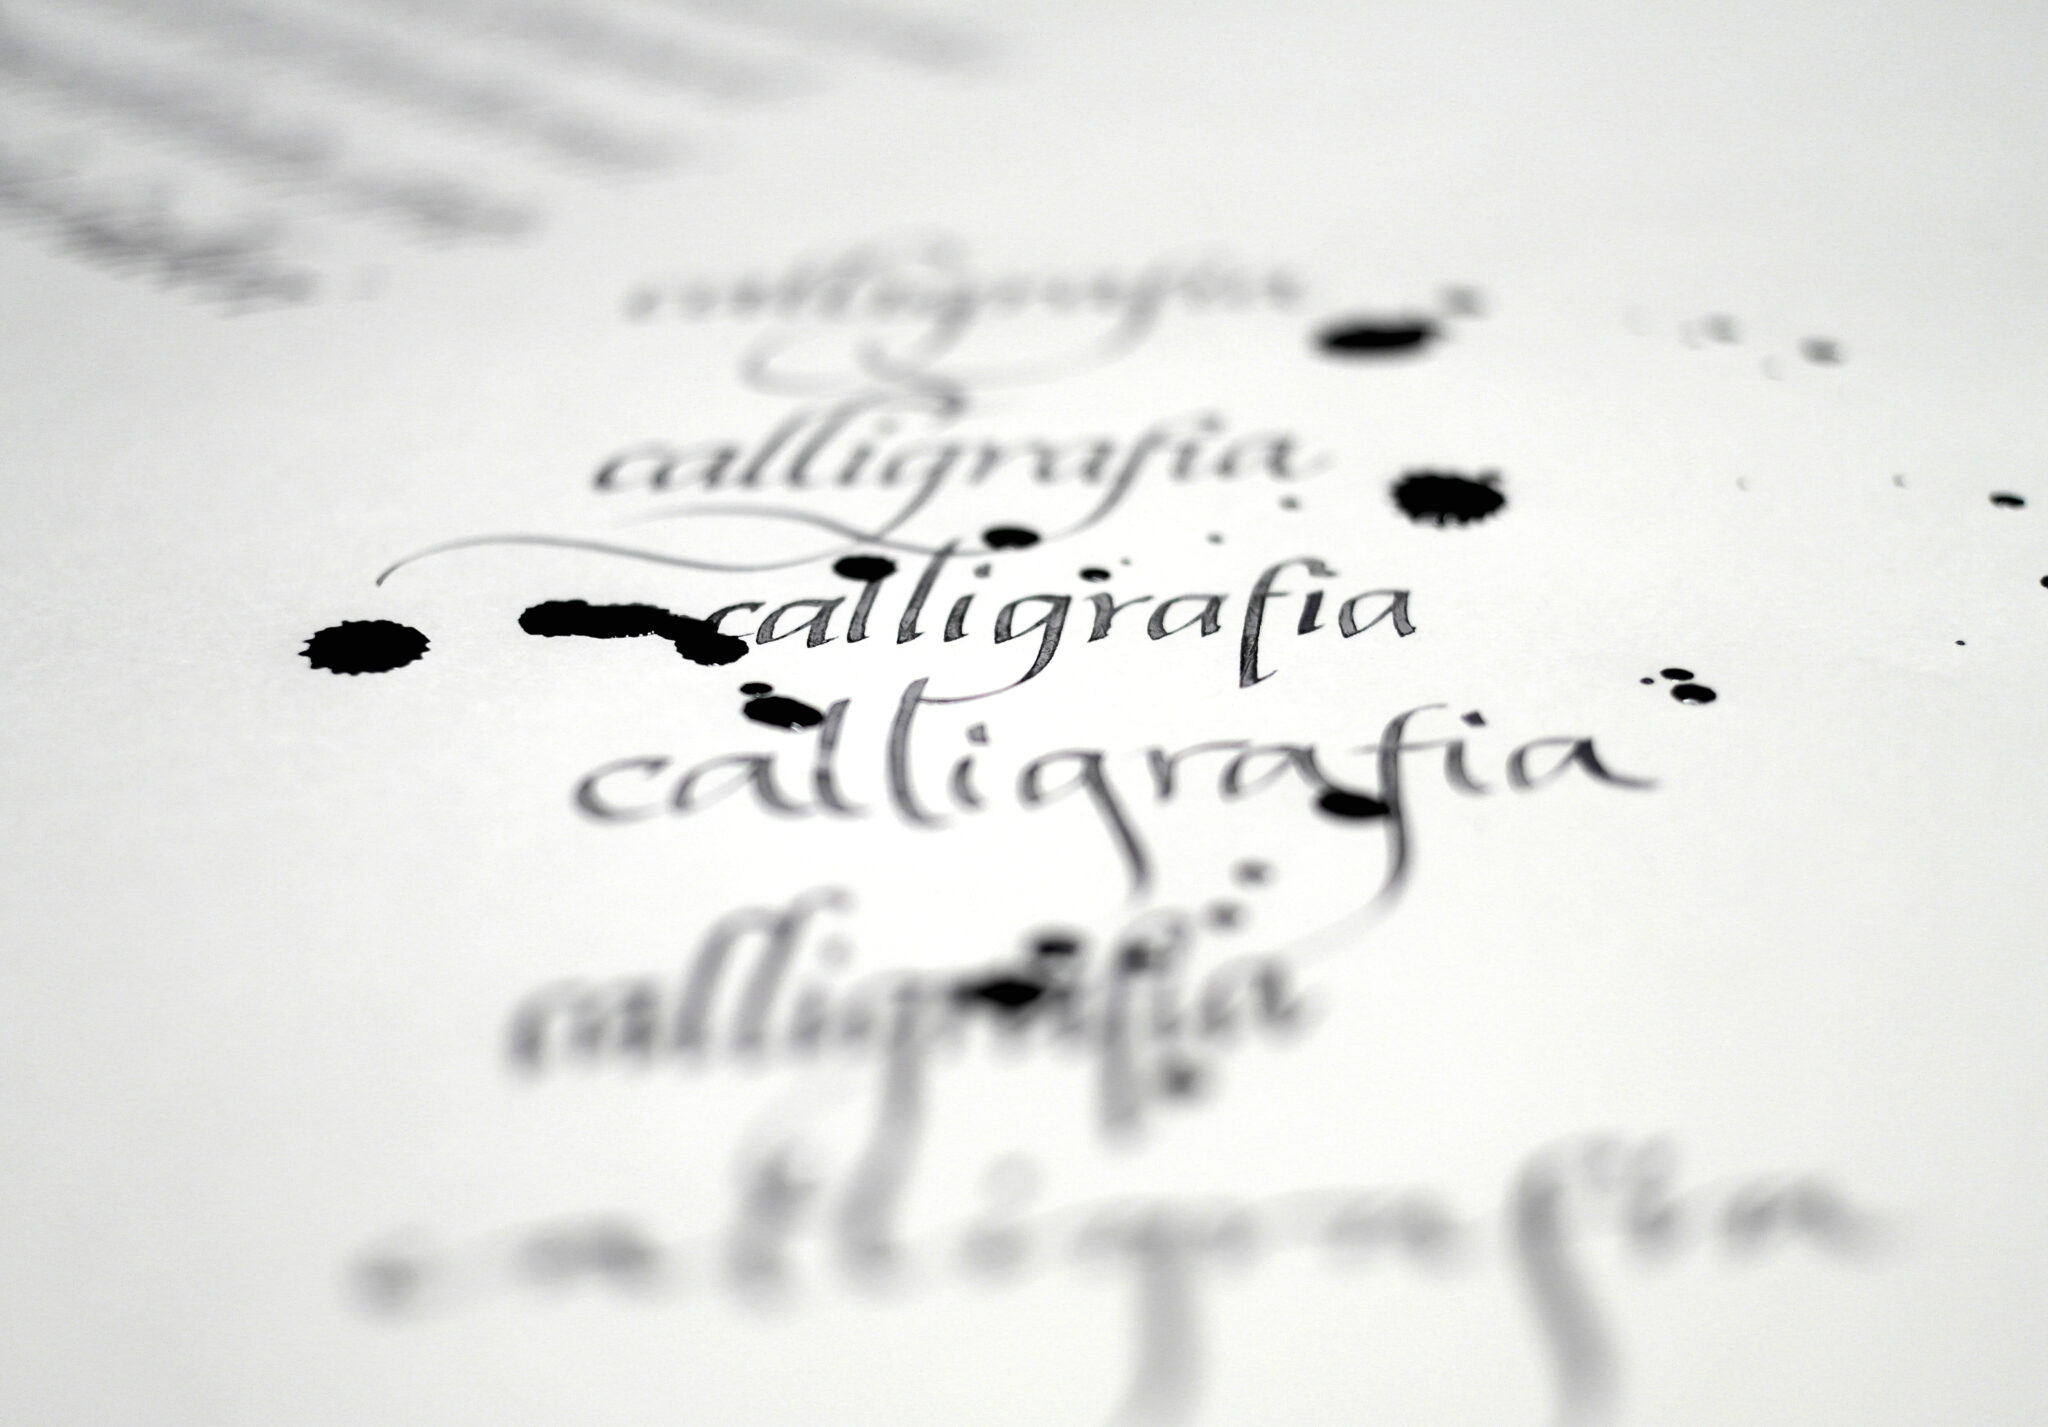 calligrafia
calligrafia
calligrafia
calligrafia
calligrafia
calligrafia